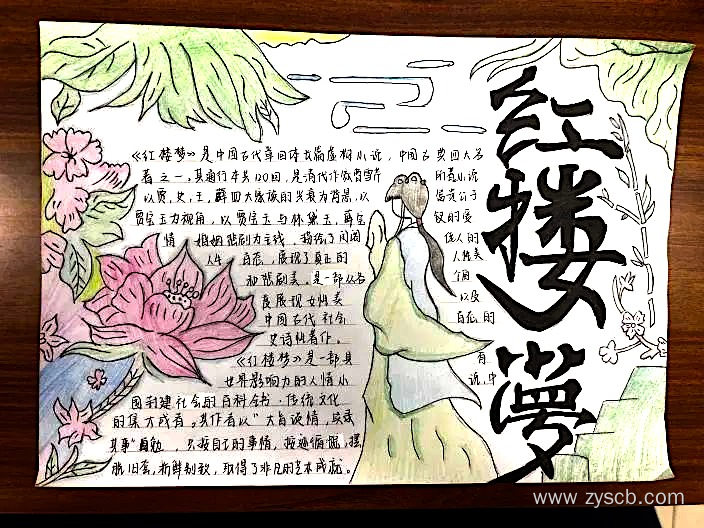 红楼梦
《红楼梦》是中国古代章回体长篇虚构小说，中国古典四大名
著之一，其通行本共120回，是清代作家曹雪芹所著小说
以贾、史、王、薛四大家族的兴衰为背景，以富贵公子
贾宝玉为视角，以贾宝玉与林黛玉、薛宝钗的爱
情 婚姻悲剧为主线，描绘了闺阁佳人的
人生 百态，展现了真正的人性美
和悲剧美。是一部从各个角
度展现女性美以及
中国古代社会百态的
史诗性著作。
《红楼梦》是一部具有
世界影响力的人情小说，中
国封建社会的百科全书，传统文化
的集大成者。其作者以“大旨谈情，实录
其事”自勉，只按自己的事情，按迹循踪，摆
脱旧套，新鲜别致，取得了非凡的艺术成就。
www.zyscb.com